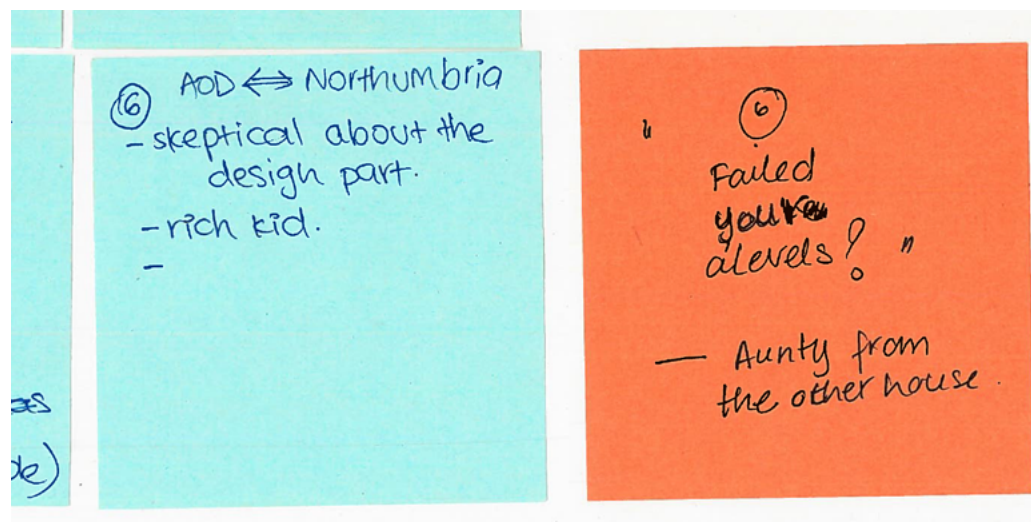 6
AOD ⇔ Northumbria
- skeptical about the
design part.
- rich kid.
-
" 6
Failed
your
alevels? "
— Aunty from
the other house.
de)